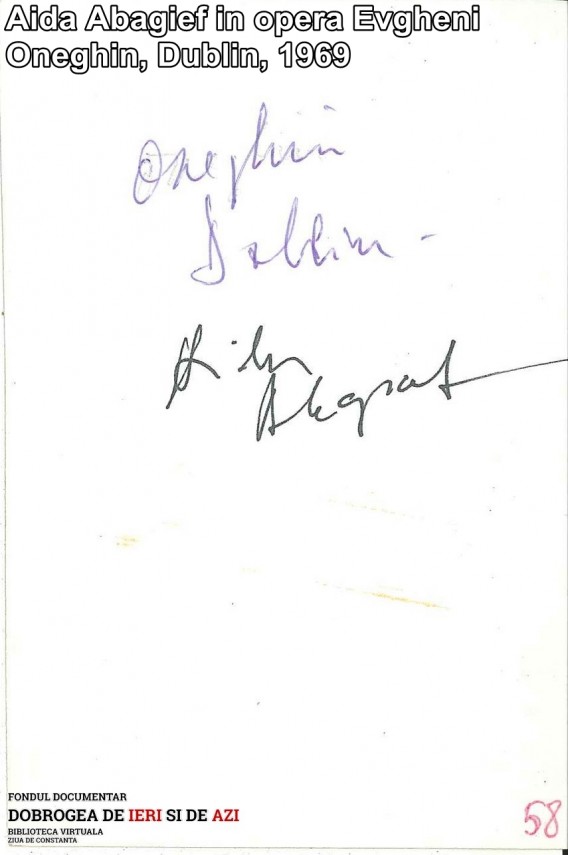 Aida Abagief in opera Evgheni
Oneghin, Dublin, 1969
Oneghin
Dublin -
Aida
Abagief
FONDUL DOCUMENTAR
DOBROGEA DE IERI SI DE AZI
BIBLIOTECA VIRTUALA
ZIUA DE CONSTANTA
58